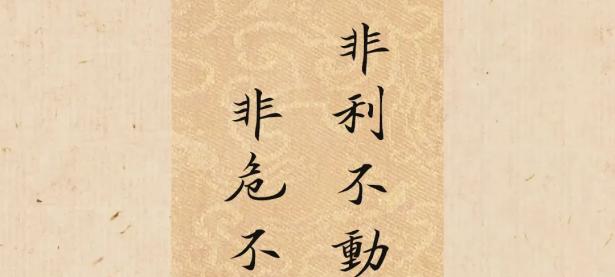 非利不動
非危不